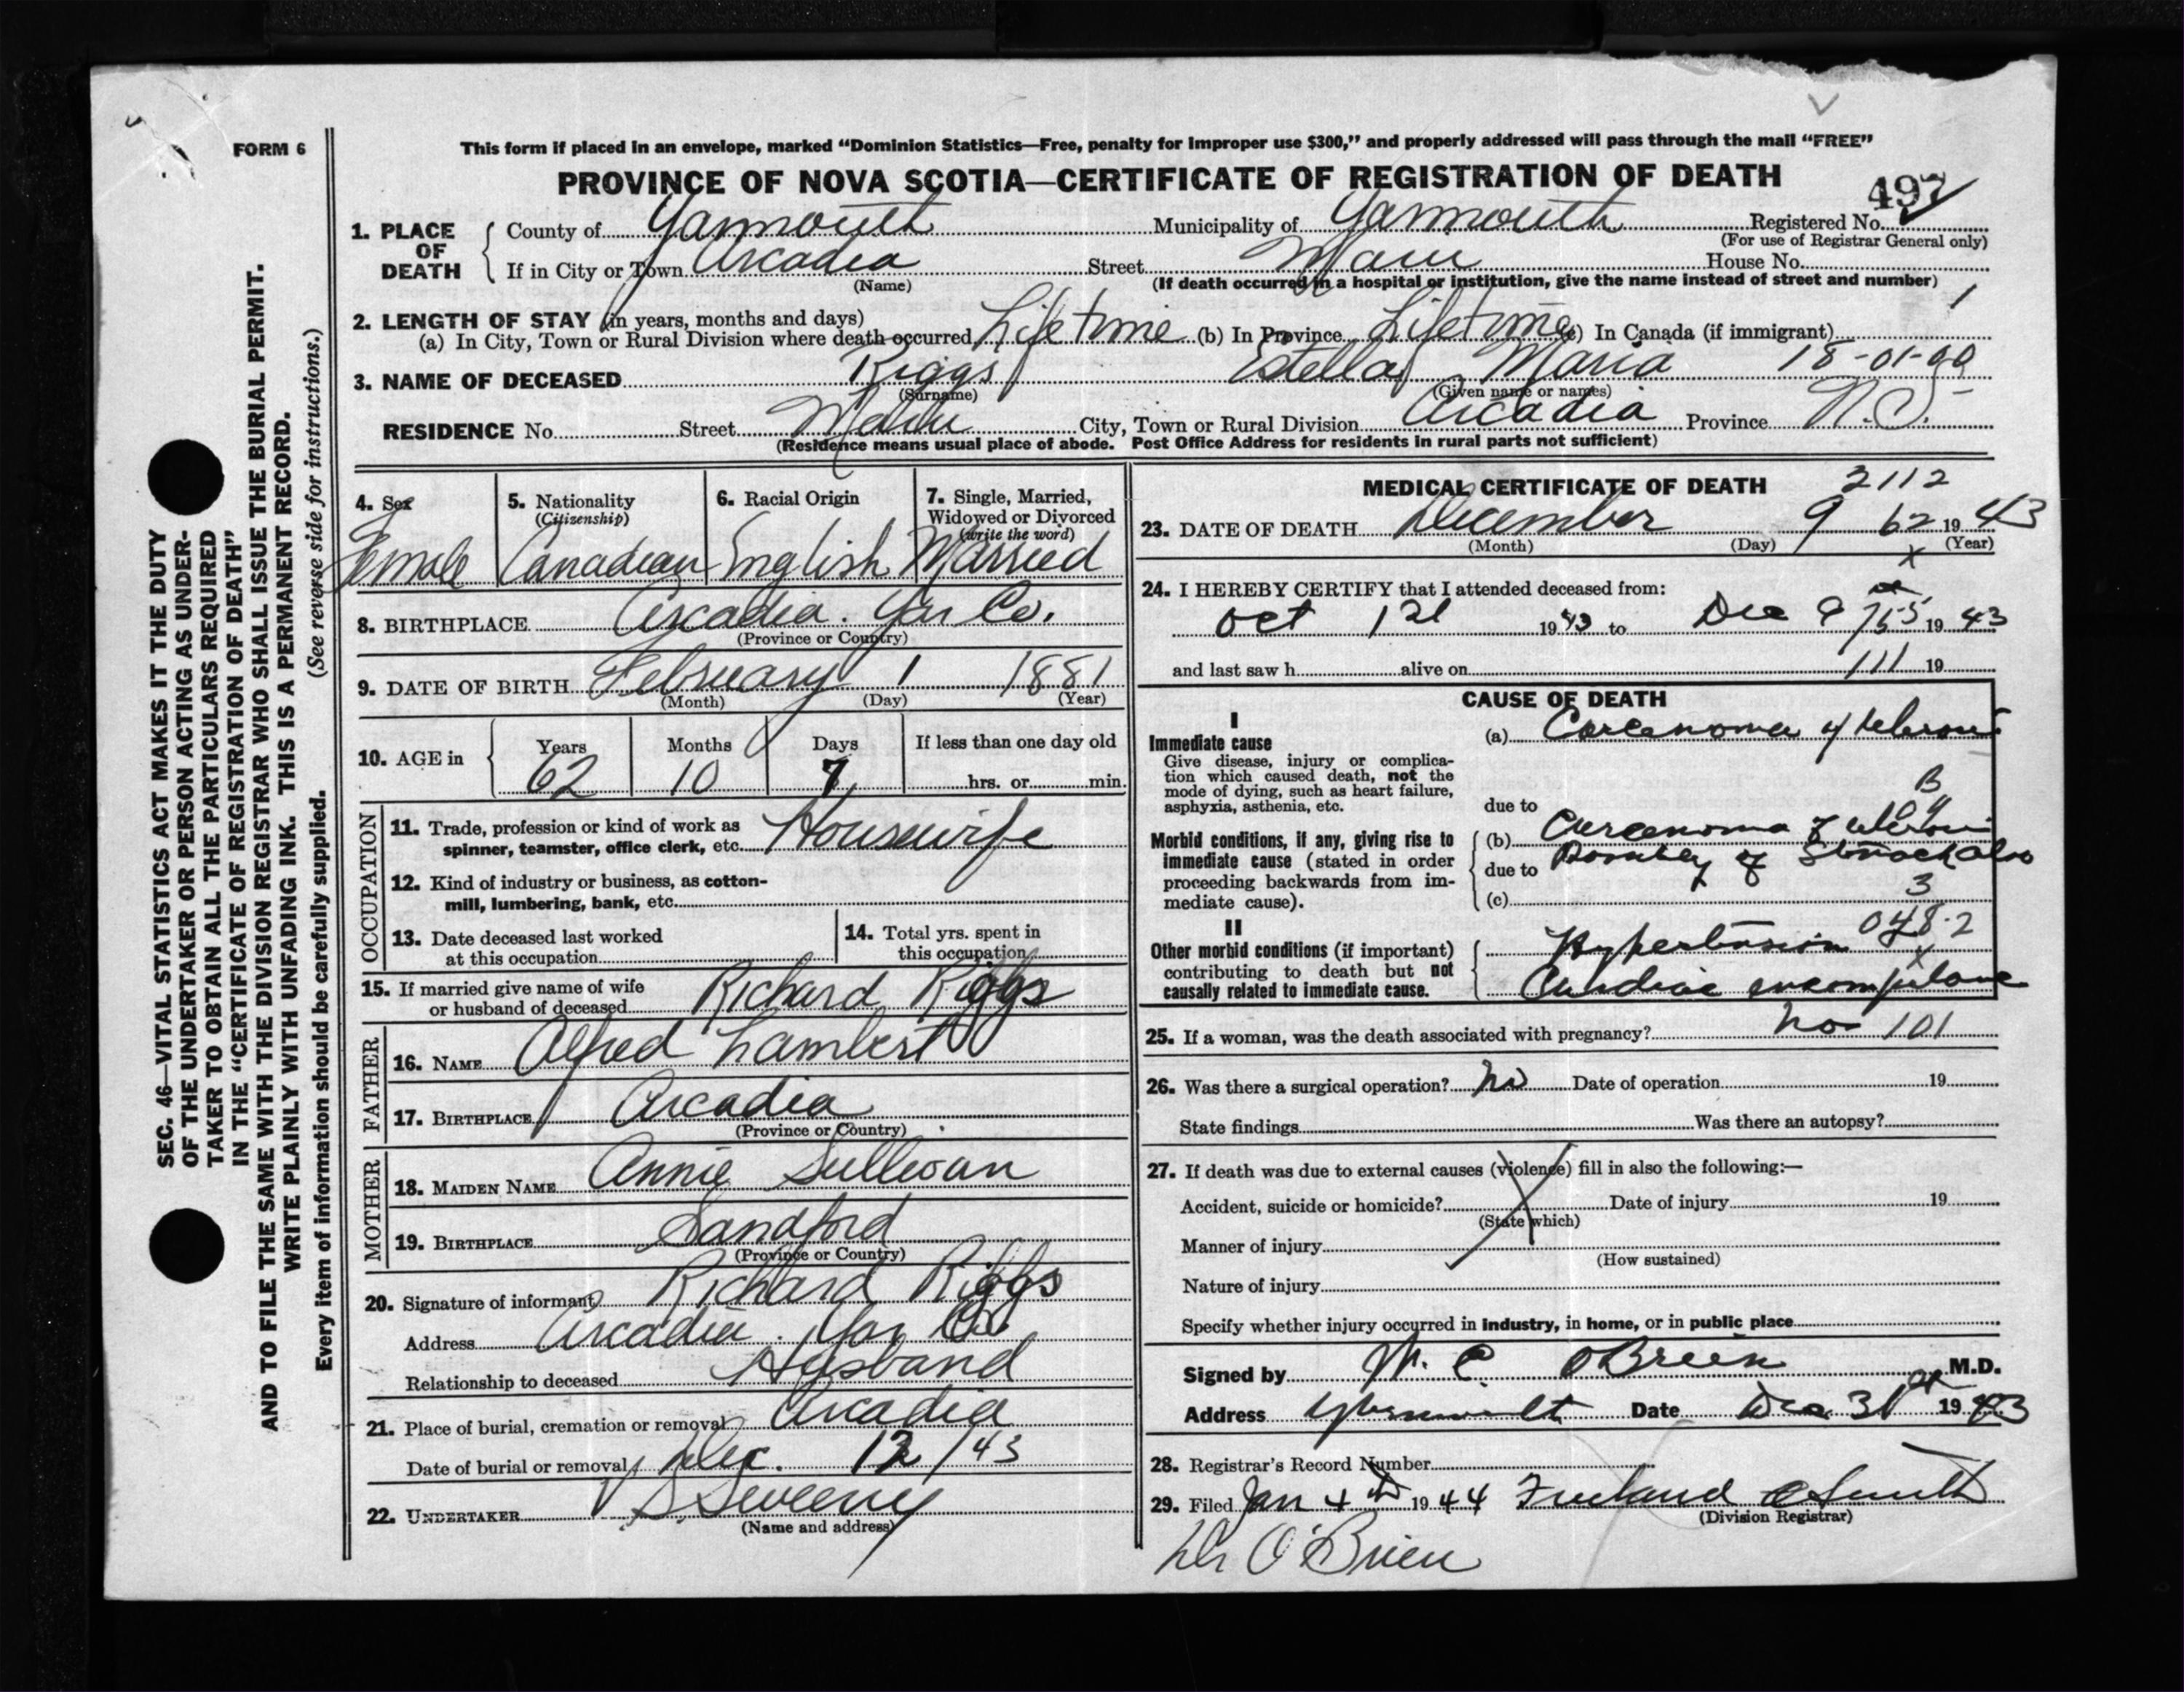 FORM 6
This form if placed in an envelope, marked "Dominion Statistics—Free, penalty for improper use $300," and properly addressed will pass through the mail "FREE"
PROVINCE OF NOVA SCOTIA—CERTIFICATE OF REGISTRATION OF DEATH
497
1. PLACE OF DEATH { County of Yarmouth Municipality of Yarmouth Registered No.
(For use of Registrar General only)
If in City or Town Arcadia Street Main House No.
(Name) (If death occurred in a hospital or institution, give the name instead of street and number)
1
2. LENGTH OF STAY (in years, months and days)
(a) In City, Town or Rural Division where death occurred Lifetime (b) In Province Lifetime (c) In Canada (if immigrant)
3. NAME OF DECEASED Riggs Estella Maria 18-01-00
(Surname) (Given name or names)
RESIDENCE No. Street Main City, Town or Rural Division Arcadia Province N.S.
(Residence means usual place of abode. Post Office Address for residents in rural parts not sufficient)
4. Sex Female
5. Nationality (Citizenship) Canadian
6. Racial Origin English
7. Single, Married, Widowed or Divorced (write the word) Married
8. BIRTHPLACE Arcadia. Yar Co.
(Province or Country)
9. DATE OF BIRTH February 1 1881
(Month) (Day) (Year)
10. AGE in { Years 62 Months 10 Days 7 If less than one day old
hrs. or min.
OCCUPATION
11. Trade, profession or kind of work as
spinner, teamster, office clerk, etc. Housewife
12. Kind of industry or business, as cotton-
mill, lumbering, bank, etc.
13. Date deceased last worked
at this occupation
14. Total yrs. spent in
this occupation
15. If married give name of wife
or husband of deceased Richard Riggs
FATHER
16. NAME Alfred Lambert
17. BIRTHPLACE Arcadia
(Province or Country)
MOTHER
18. MAIDEN NAME Annie Sullivan
19. BIRTHPLACE Sandford
(Province or Country)
20. Signature of informant Richard Riggs
Address Arcadia. Yar Co
Relationship to deceased Husband
21. Place of burial, cremation or removal Arcadia
Date of burial or removal Dec. 12/43
22. UNDERTAKER Sweeny
(Name and address)
MEDICAL CERTIFICATE OF DEATH 2112
23. DATE OF DEATH December 9 62 19 43
(Month) (Day) (Year)
x
24. I HEREBY CERTIFY that I attended deceased from:
Oct 1st 19 43 to Dec 9 19 43
and last saw h alive on 111 19
CAUSE OF DEATH
I
Immediate cause
Give disease, injury or complica-
tion which caused death, not the
mode of dying, such as heart failure,
asphyxia, asthenia, etc.
(a) Carcenoma of
B
due to
Morbid conditions, if any, giving rise to
immediate cause (stated in order
proceeding backwards from im-
mediate cause).
(b) Carcenoma of
due to of Stomach also
3
(c)
II
Other morbid conditions (if important)
contributing to death but not
causally related to immediate cause.
Hypertension 048-2
Cardiac
25. If a woman, was the death associated with pregnancy? no 101
26. Was there a surgical operation? no Date of operation 19
State findings Was there an autopsy?
27. If death was due to external causes (violence) fill in also the following:—
Accident, suicide or homicide? Date of injury 19
(State which)
Manner of injury
(How sustained)
Nature of injury
Specify whether injury occurred in industry, in home, or in public place
Signed by O'Brien M.D.
Address Date Dec 31st 19 43
28. Registrar's Record Number
29. Filed Jan 4th 19 44 Smith
(Division Registrar)
Dr O'Brien
SEC. 46—VITAL STATISTICS ACT MAKES IT THE DUTY
OF THE UNDERTAKER OR PERSON ACTING AS UNDER-
TAKER TO OBTAIN ALL THE PARTICULARS REQUIRED
IN THE "CERTIFICATE OF REGISTRATION OF DEATH"
AND TO FILE THE SAME WITH THE DIVISION REGISTRAR WHO SHALL ISSUE THE BURIAL PERMIT.
WRITE PLAINLY WITH UNFADING INK. THIS IS A PERMANENT RECORD.
Every item of information should be carefully supplied. (See reverse side for instructions.)